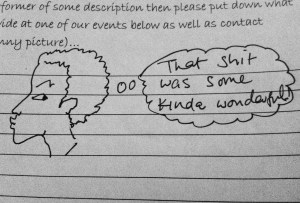 former of some description then please put down what
ide at one of our events below as well as contact
nny picture)...
That shit
was some
kinda wonderful